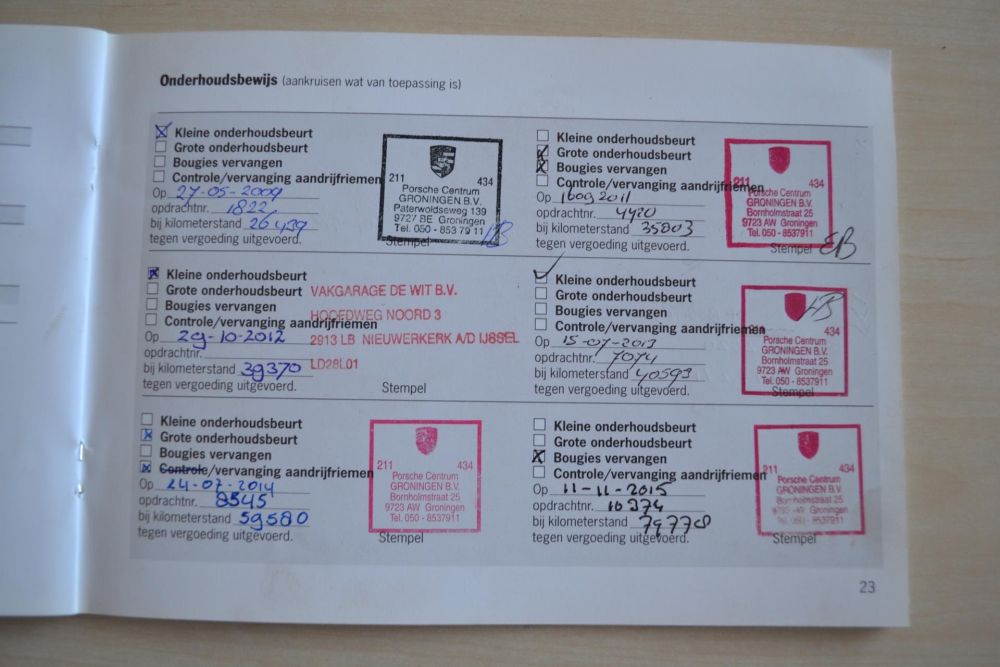 Onderhoudsbewijs (aankruisen wat van toepassing is)
Kleine onderhoudsbeurt
Grote onderhoudsbeurt
Bougies vervangen
Controle/vervanging aandrijfriemen
Op 27-05-2009
opdrachtnr. 1822
bij kilometerstand 26439
tegen vergoeding uitgevoerd.
Stempel
211 434
Porsche Centrum
GRONINGEN B.V.
Paterwoldsweg 139
9727 BE Groningen
Tel. 050 - 853 79 11
Kleine onderhoudsbeurt
Grote onderhoudsbeurt
Bougies vervangen
Controle/vervanging aandrijfriemen
Op 160g 2011
opdrachtnr. 4420
bij kilometerstand 35803
tegen vergoeding uitgevoerd.
Stempel
211 434
Porsche Centrum
GRONINGEN B.V.
Bornholmstraat 25
9723 AW Groningen
Tel. 050 - 8537911
EB
Kleine onderhoudsbeurt
Grote onderhoudsbeurt
Bougies vervangen
Controle/vervanging aandrijfriemen
Op 29-10-2012
opdrachtnr.
bij kilometerstand 39370
tegen vergoeding uitgevoerd.
Stempel
VAKGARAGE DE WIT B.V.
HOOFDWEG NOORD 3
2913 LB NIEUWERKERK A/D IJSSEL
LD28L01
Kleine onderhoudsbeurt
Grote onderhoudsbeurt
Bougies vervangen
Controle/vervanging aandrijfriemen
Op 15-07-2013
opdrachtnr. 7074
bij kilometerstand 40593
tegen vergoeding uitgevoerd.
Stempel
434
Porsche Centrum
GRONINGEN B.V.
Bornholmstraat 25
9723 AW Groningen
Tel. 050 - 8537911
Kleine onderhoudsbeurt
Grote onderhoudsbeurt
Bougies vervangen
Controle/vervanging aandrijfriemen
Op 24-07-2014
opdrachtnr. 8545
bij kilometerstand 59580
tegen vergoeding uitgevoerd.
Stempel
211 434
Porsche Centrum
GRONINGEN B.V.
Bornholmstraat 25
9723 AW Groningen
Tel. 050 - 8537911
Kleine onderhoudsbeurt
Grote onderhoudsbeurt
Bougies vervangen
Controle/vervanging aandrijfriemen
Op 11-11-2015
opdrachtnr. 10374
bij kilometerstand 74778
tegen vergoeding uitgevoerd.
Stempel
211 434
Porsche Centrum
GRONINGEN B.V.
Bornholmstraat 25
Groningen
8537911
23